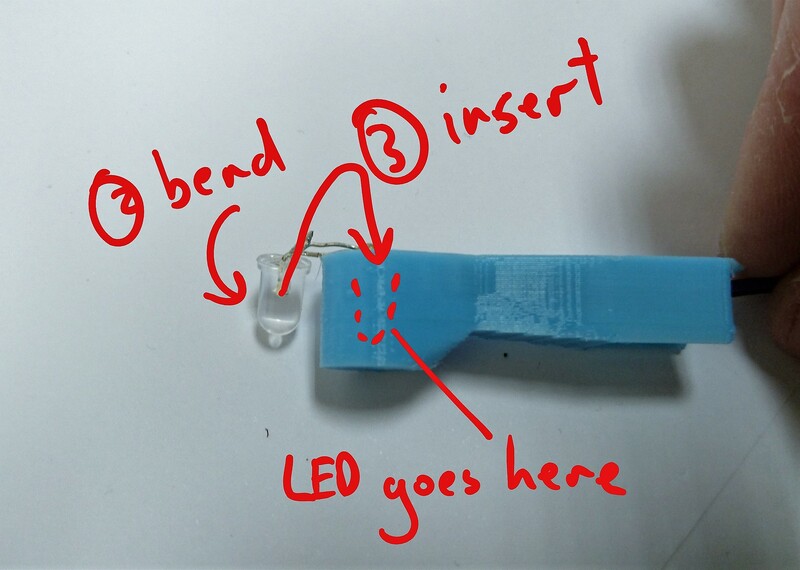 ② bend
③ insert
LED goes here